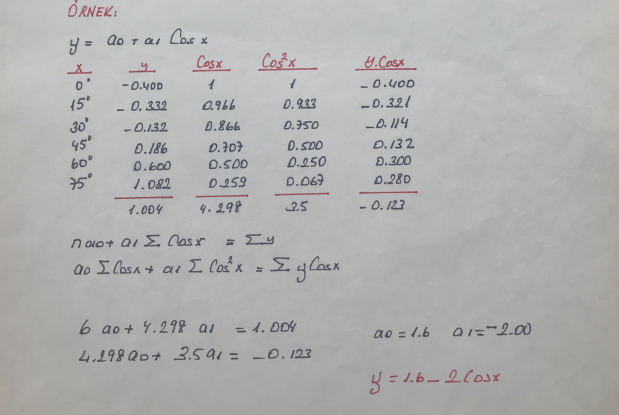 ÖRNEK:
y = a0 + a1 Cos x
x y Cosx Cos²x y.Cosx
0° -0.400 1 1 -0.400
15° -0.332 0.966 0.933 -0.321
30° -0.132 0.866 0.750 -0.114
45° 0.186 0.707 0.500 0.132
60° 0.600 0.500 0.250 0.300
75° 1.082 0.259 0.067 0.280
1.004 4.298 3.5 -0.123
n a0 + a1 Σ Cosx = Σy
a0 ΣCosx + a1 Σ Cos²x = Σ yCosx
6 a0 + 4.298 a1 = 1.004
4.298a0 + 3.5a1 = -0.123
a0 = 1.6 a1 = -2.00
y = 1.6 - 2Cosx